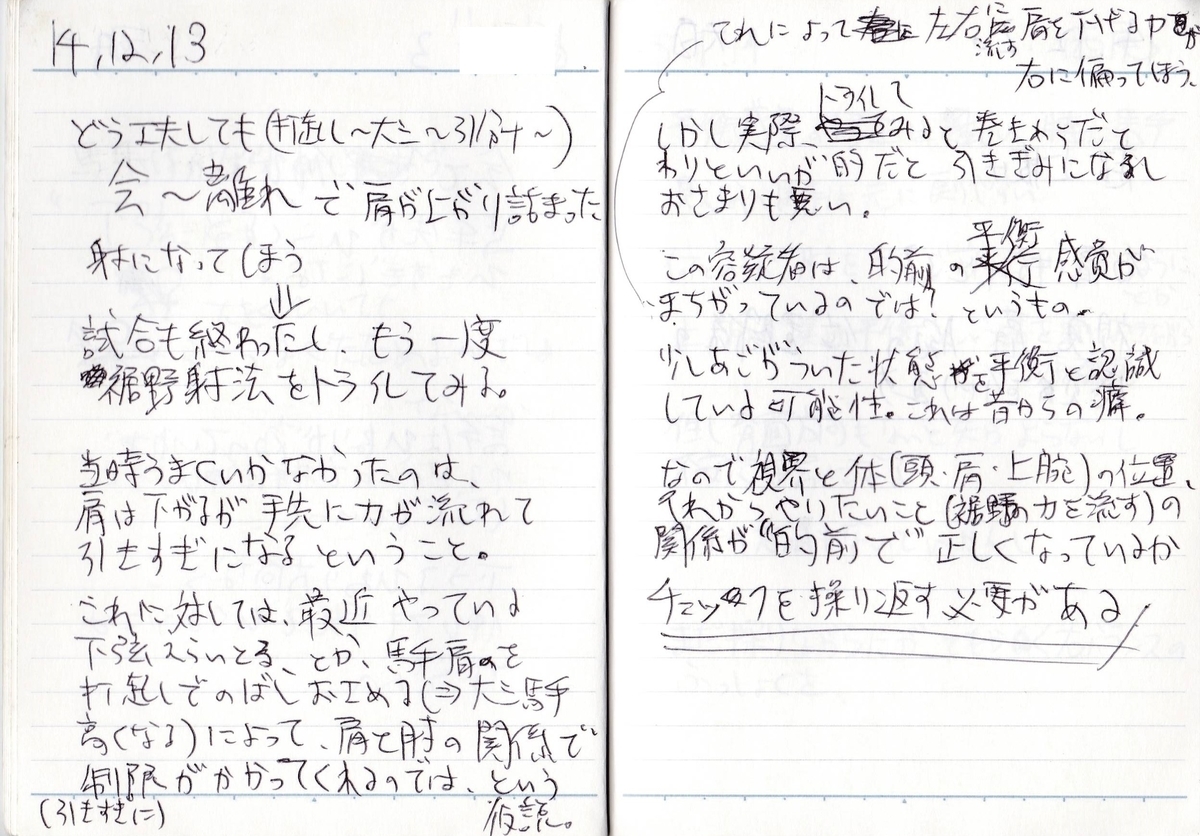 14,12,13
どう工夫しても(打起し〜大三〜引分け〜)
会〜離れ で肩が上がり詰まった
射になってしまう
↓
試合も終わったし、もう一度
裾野射法をトライしてみる。
当時うまくいかなかったのは、
肩は下がるが手先に力が流れて
引きすぎになるということ。
これに対しては、最近やっている
下弦ねらいとる、とか、馬手肩を
打起しでのばしおさめる(⇒大三馬手
高くなる)によって、肩と肘の関係で
制限がかかってくれるのでは、という
(引きすぎに) 仮説。
それによって 左右に流す肩を下げる力が
右に偏ってしまう、
しかし実際、トライしてみると巻きわらだと
わりといいが的だと引きぎみになるし
おさまりも悪い。
この容疑者は、的前の平衡感覚が
まちがっているのでは?というもの。
少しあごがついた状態を平衡と認識
している可能性。これは昔からの癖。
なので視界と体(頭・肩・上腕)の位置、
それからやりたいこと(裾野の力を流す)の
関係が"的前で"正しくなっているか
チェックを繰り返す必要がある